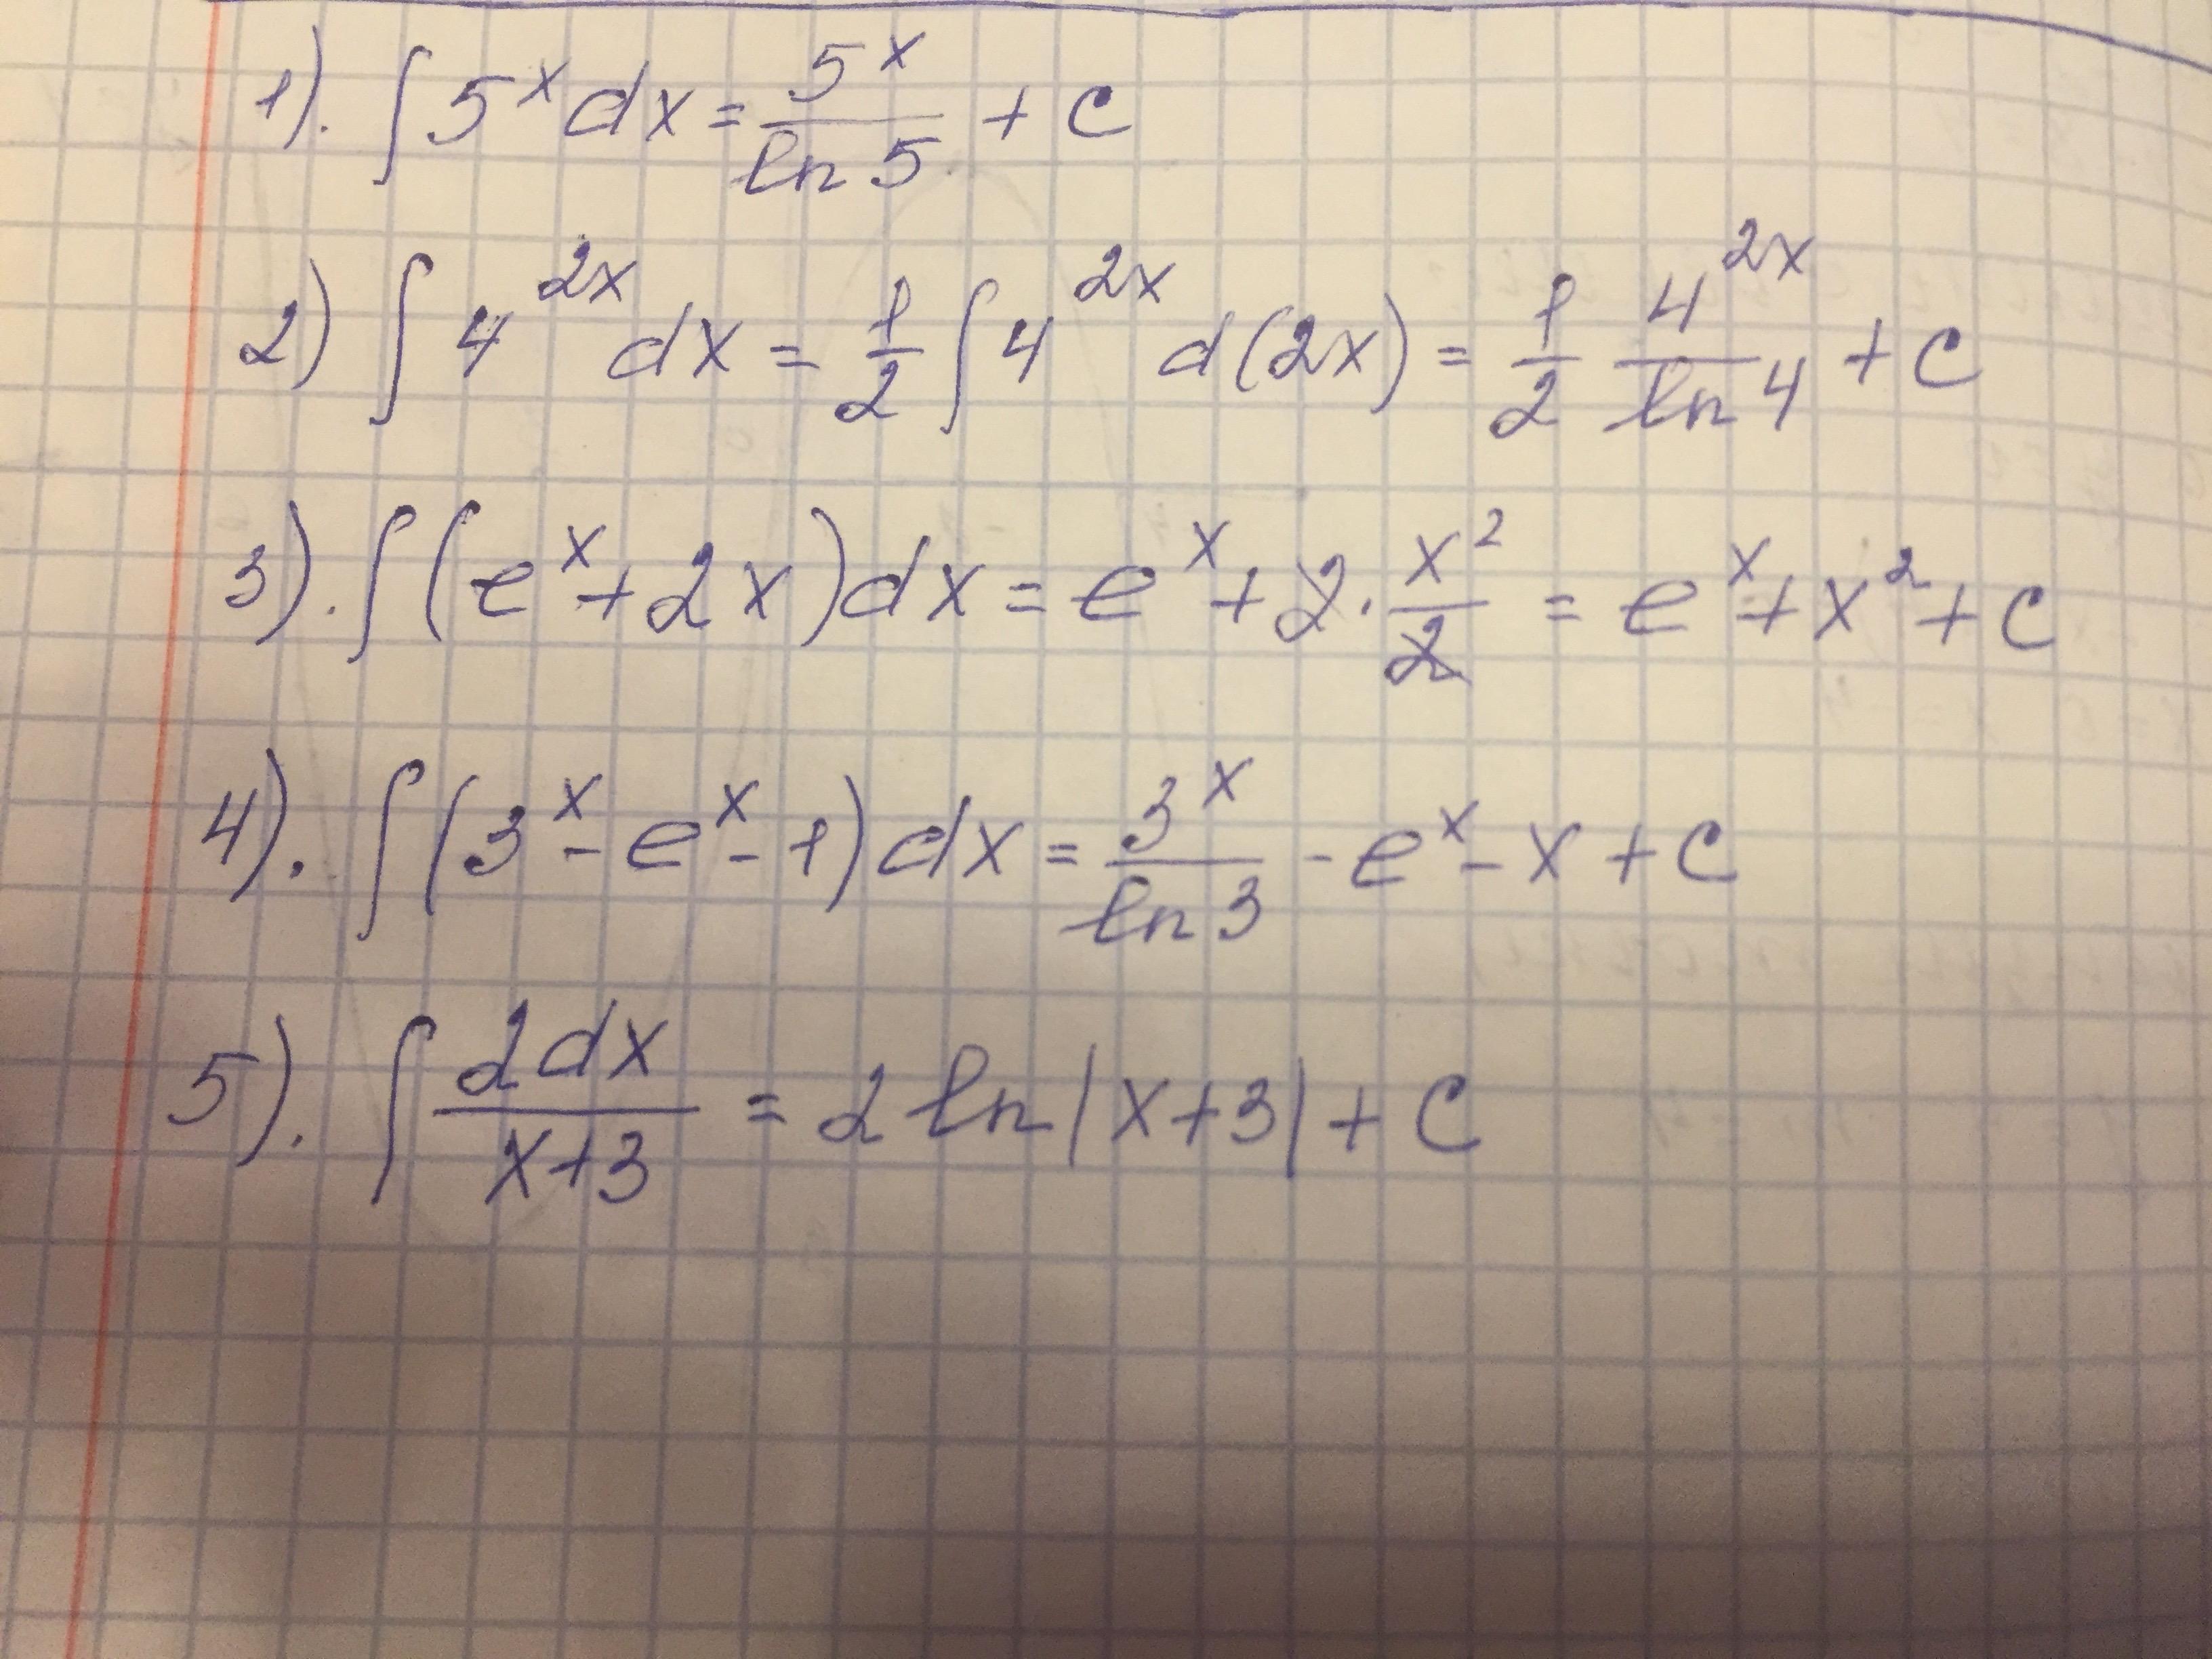 1). ∫ 5^x dx = 5^x / ln 5 + C
2) ∫ 4^{2x} dx = 1/2 ∫ 4^{2x} d(2x) = 1/2 4^{2x} / ln 4 + C
3). ∫ (e^x + 2x) dx = e^x + 2 · x^2 / 2 = e^x + x^2 + C
4). ∫ (3^x - e^x - 1) dx = 3^x / ln 3 - e^x - x + C
5). ∫ 2dx / x+3 = 2 ln |x+3| + C